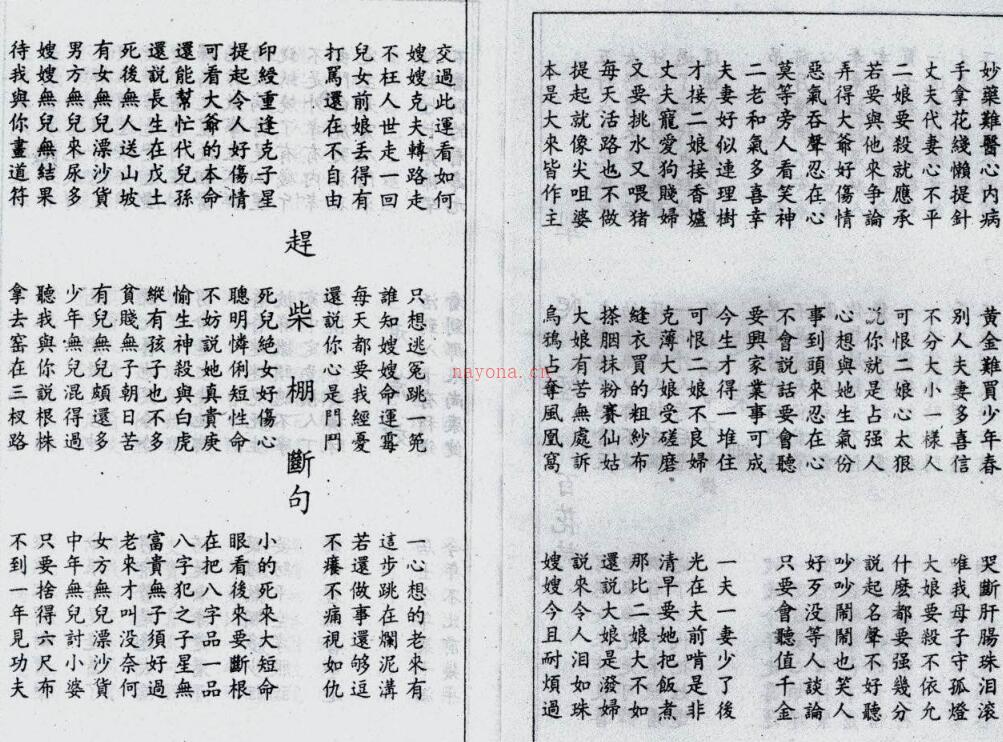 妙藥難醫心內病 黃金難買少年春 哭斷肝腸珠泪滚
手拿花綫懶提針 別人夫妻多喜信 唯我母子守孤燈
丈夫代妻心不平 不分大小一樣人 大娘要殺不依允
二娘要殺就應承 可恨二娘心太狠 什麽都要强幾分
若要與他來爭論 說你就是占强人 說起名聲不好聽
弄得大爺好傷情 心想與她生氣份 吵吵鬧鬧也笑人
惡氣吞聲忍在心 事到頭來忍在心 好歹没等人談論
莫等旁人看笑神 不會說話要會聽 只要會聽值千金
二老和氣多喜幸 要興家業事可成
夫妻好似連理樹 今生才得一堆住 一夫一妻少了後
才接二娘接香爐 可恨二娘不良婦 光在夫前啃是非
丈夫寵愛狗賤婦 克薄大娘受磋磨 清早要她把飯煮
又要挑水又喂猪 縫衣買的粗紗布 那比二娘大不如
每天活路也不做 搽胭抹粉賽仙姑 還說大娘是潑婦
提起就像尖咀婆 大娘有苦無處訴 說來令人泪如珠
本是大來皆作主 烏鴉占奪鳳凰窩 嫂嫂今且耐煩過
交過此運看如何
嫂嫂克夫轉路走 只想逃冤跳一箢 一心想的老來有
不枉人世走一回 誰知嫂嫂命運霉 這步跳在爛泥溝
兒女前娘丢得有 每天都要我經憂 若還做事還够逗
打罵還在不自由 還說你心是鬥鬥 不癢不痛視如仇
趕柴棚斷句
印綬重逢克子星 死兒絕女好傷心 小的死來大短命
提起令人好傷情 聰明憐俐短性命 眼看後來要斷根
可看大爺的本命 不妨說她真貴庚 在把八字品一品
還能幫忙代兒孫 愉生神殺與白虎 八字犯之子星無
還說長生在戊土 縱有孩子也不多 富貴無子須好過
死後無人送山坡 貧賤無子朝日苦 老來才叫没奈何
有女無兒漂沙貨 有兒無兒頗還多 女方無兒漂沙貨
男方無兒來尿多 少年無兒混得過 中年無兒討小婆
嫂嫂無兒無結果 聽我與你說根株 只要捨得六尺布
待我與你畫道符 拿去窑在三杈路 不到一年見功夫
nayona.cn